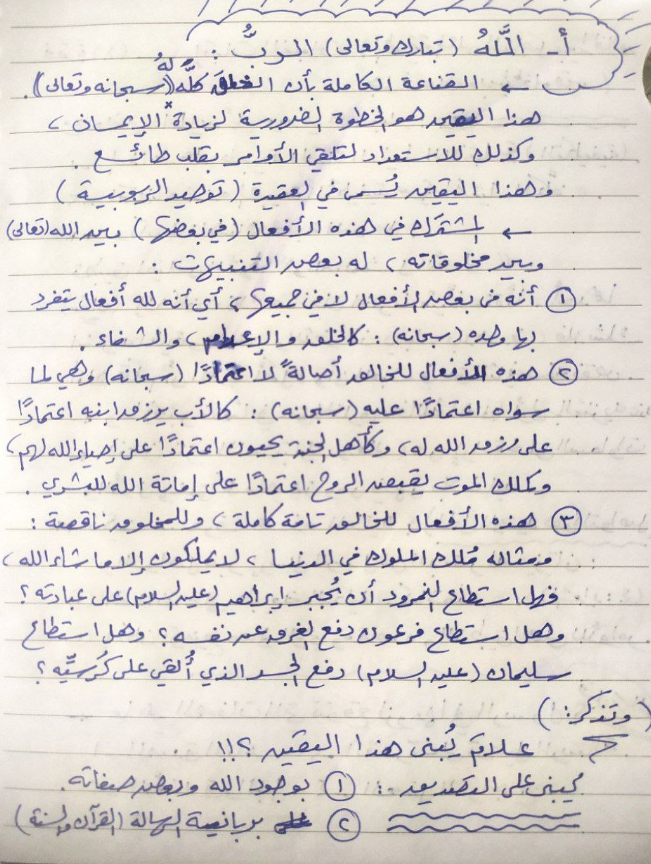 أ- اللَّهُ (تبارك وتعالى) الربُّ :
← القناعة الكاملة بأن الخلق كلَّه لهُ (سبحانه وتعالى).
هذا اليقين هو الخطوة الضرورية لزيادة الإيمان ،
وكذلك للاستعداد لتلقي الأوامر بقلب طائع .
وهذا اليقين يُسمى في العقيدة (توحيد الربوبية)
← المشترَك في هذه الأفعال (في بعضها) بين الله (تعالى)
وبين مخلوقاته ، له بعض التنبيهات :
① أنَّه في بعض الأفعال لا في جميعها ، أي أنه لله أفعال يتفرد
بها وحده (سبحانه) : كالخلق والإعدام ، والشفاء .
② هذه الأفعال للخالق أصالةً لا اعتمادًا (سبحانه) وهي لما
سواه اعتمادًا عليه (سبحانه) : كالأب يرزق ابنه اعتمادًا
على رزق الله له ، وكأهل الجنة يحيون اعتمادًا على إحياء الله لهم ،
وملك الموت يقبض الروح اعتمادًا على إماتة الله للبشري .
③ هذه الأفعال للخالق تامة كاملة ، وللمخلوق ناقصة :
ومثاله مُلك الملوك في الدنيا ، لا يملكون إلا ما شاء الله ،
فهل استطاع النمرود أن يُجبر إبراهيم (عليه السلام) على عبادته ؟
وهل استطاع فرعون دفع الغرق عن نفسه ؟ وهل استطاع
سليمان (عليه السلام) دفع الجسد الذي أُلقي على كُرسيِّه ؟
(وتذكر :)
علامَ يُبنى هذا اليقين ؟!! .
يُبنى على التصديق : ① بوجود الله وبعض صفاته .
② بربانية الرسالة (القرآن والسنة)